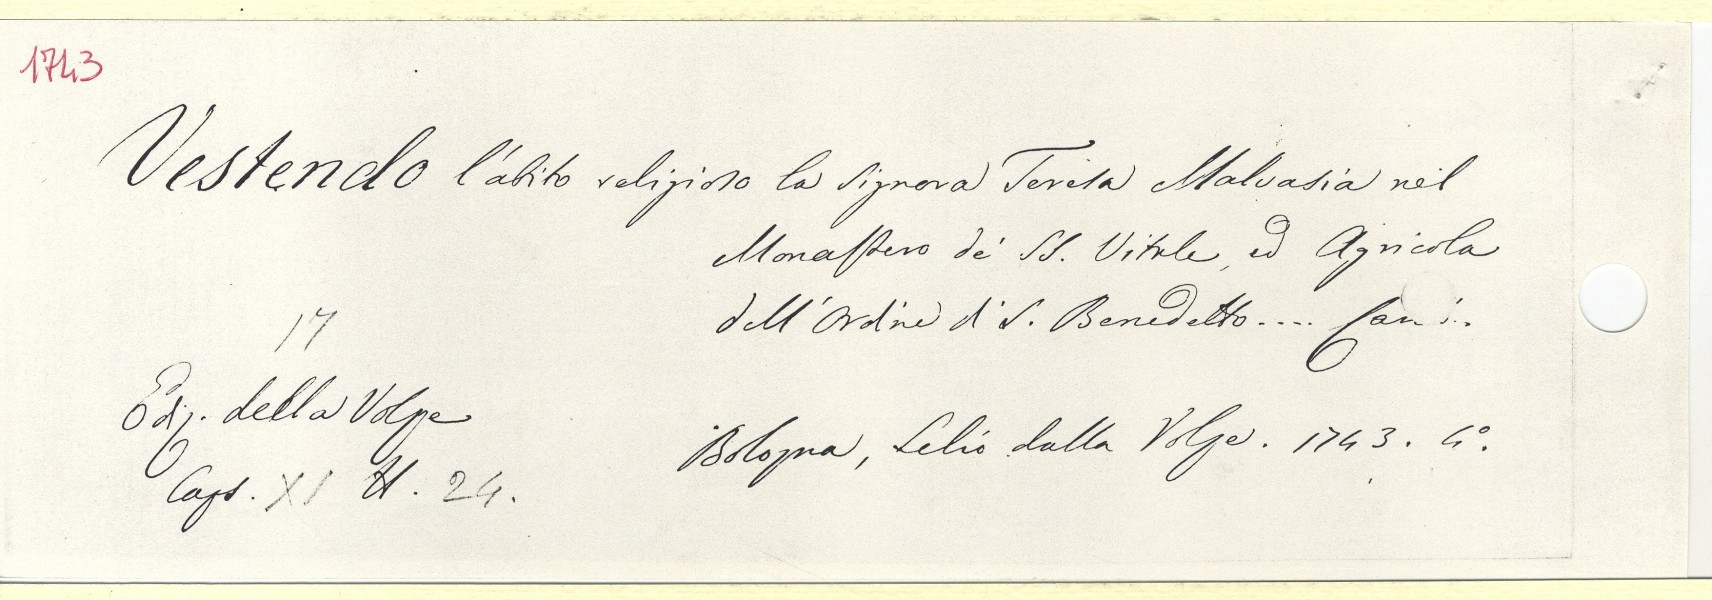 1743
Vestendo l'abito religioso la signora Teresa Malvasia nel
Monastero de' SS. Vitale, ed Agricola
dell'Ordine di S. Benedetto....
17
Ediz. della Volpe
Bologna, Lelio dalla Volpe. 1743. 4°.
Caps. XI N. 24.